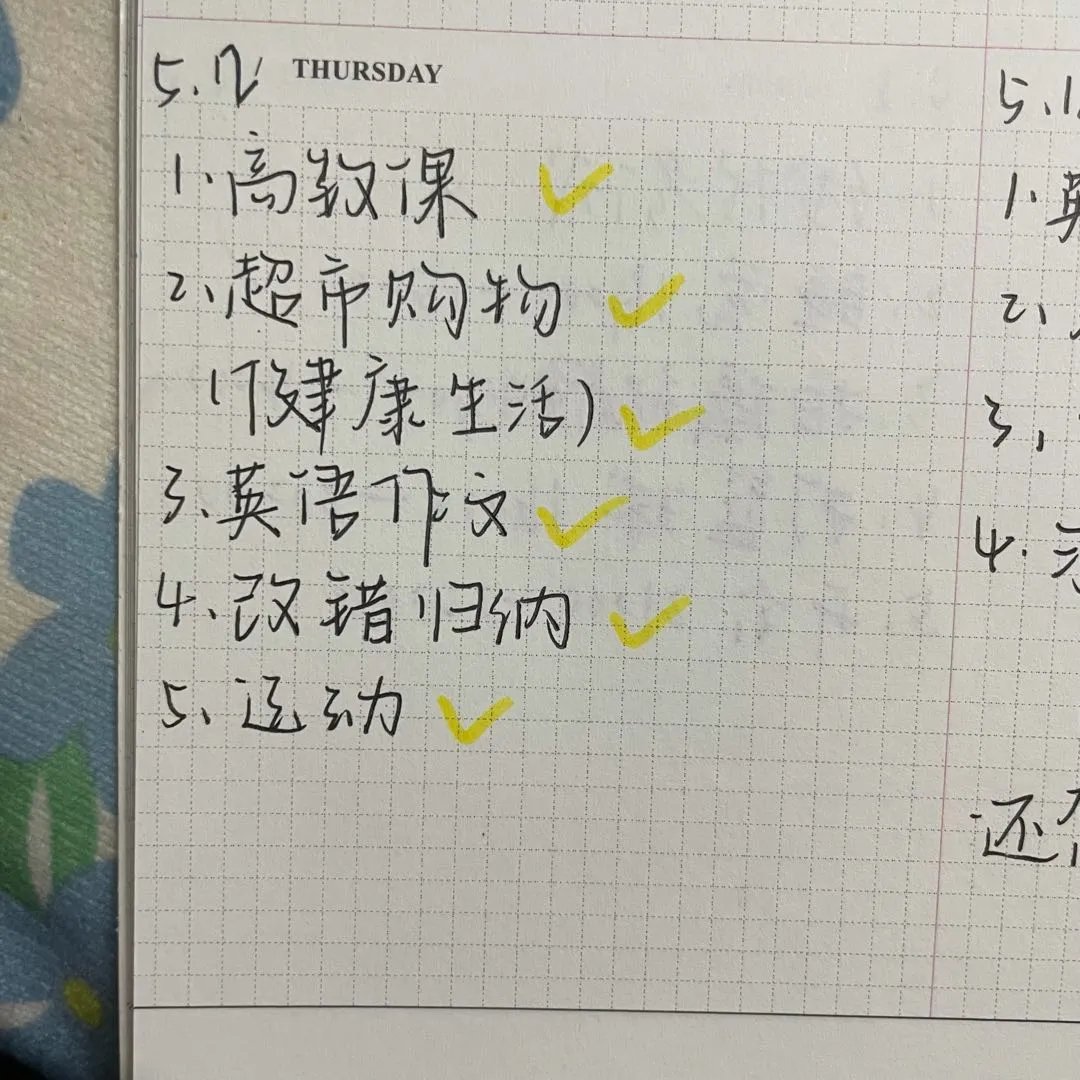 5.12 THURSDAY
1.高数课
2、超市购物
(健康生活)
3、英语作文
4、改错归纳
5、运动
5.1
1.英
2、
3、
4.
还